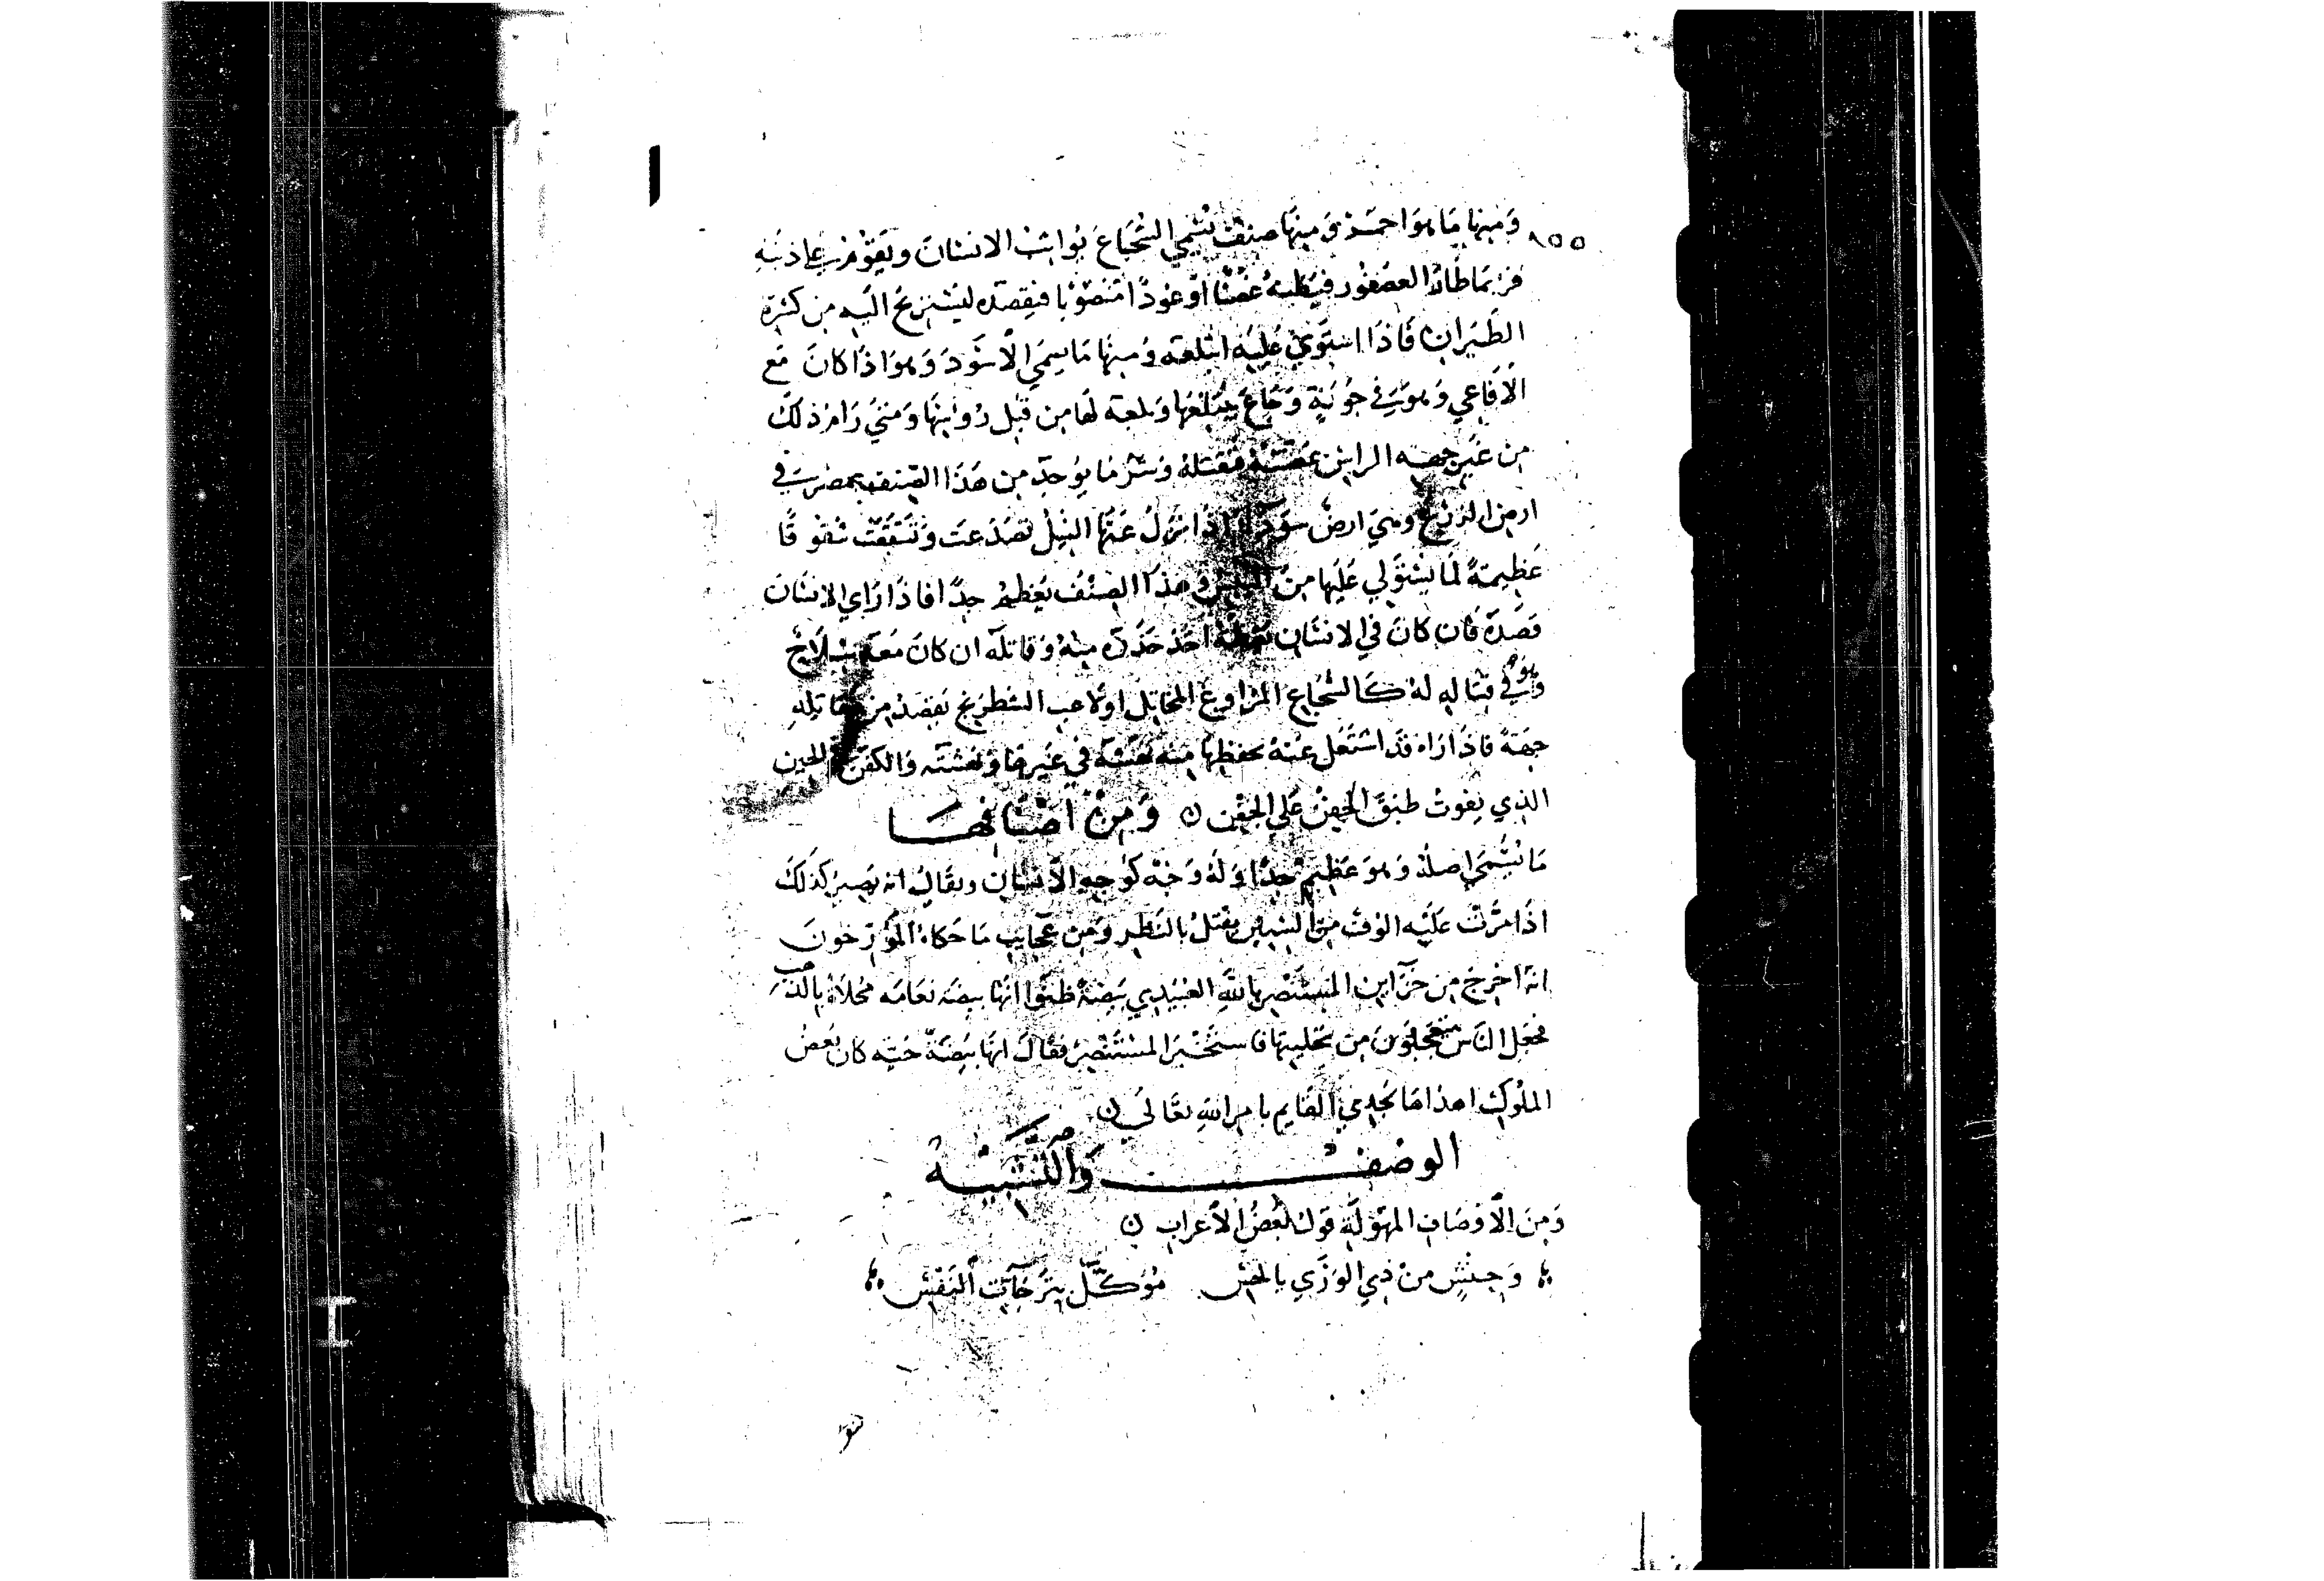 ٨٥٥
ومنها ما هو احمد ومنها صنف تسمي الشجاع يواثب الانسان ويقوم على ذنبه
فربما طار العصفور فيظنه غصنا او عودا منصوبا فيقصده ليستريح اليه من كثرة
الطيران فاذا استوى عليه ابتلعه ومنها ما يسمي الاسود وهو اذا كان مع
الافاعي وهو في جونة وجاع يبتلعها وبلعه لها من قبل رووسها ومتي رام ذلك
من غير جهه الراس عضته فقتلته وشر ما يوجد من هذا الصنف بمصر في
ارض الزرع وهي ارض سودا اذا نزل عنها النيل تصدعت وتشققت شقوقا
عظيمة لما يستولي عليها من اليبس وهذا الصنف يعظم جدا فاذا راي الانسان
قصده فان كان في الانسان اخذ حذره منه وقاتله ان كان معه سلاح
وهو في قتاله له كالشجاع المراوغ المخاتل او لاعب الشطرنج يقصد من مقاتله
جهة فاذا راه قد اشتغل عنه بحفظها منه نهشه في غيرها ونهشته والكفن للحين
الذي يفوت طبق الجفن علي الجفن ن ومن اصنافها
ما تسمي اصلة وهو عظيم جدا وله وجه كوجه الانسان ويقال انه يصير كذلك
اذا مرت عليه الوف من السنين يقتل بالنظر ومن عجايب ما حكاه المؤرخون
انه اخرج من خزاين المستنصر بالله العبيدي بيضة ظنوا انها بيضه نعامه محلاة بالذهب
فجعل الناس متعجبون من تحليتها فاستخبر المستنصر فقال انها بيضة حيه كان بعض
الملوك اهداها لجدي القايم بامر الله تعالي ن
الوصف والتشبيه
ومن الاوصاف المهولة قول بعض الاعراب ن
وحنش من ذي الورى بالحس موكل بترحات النفس